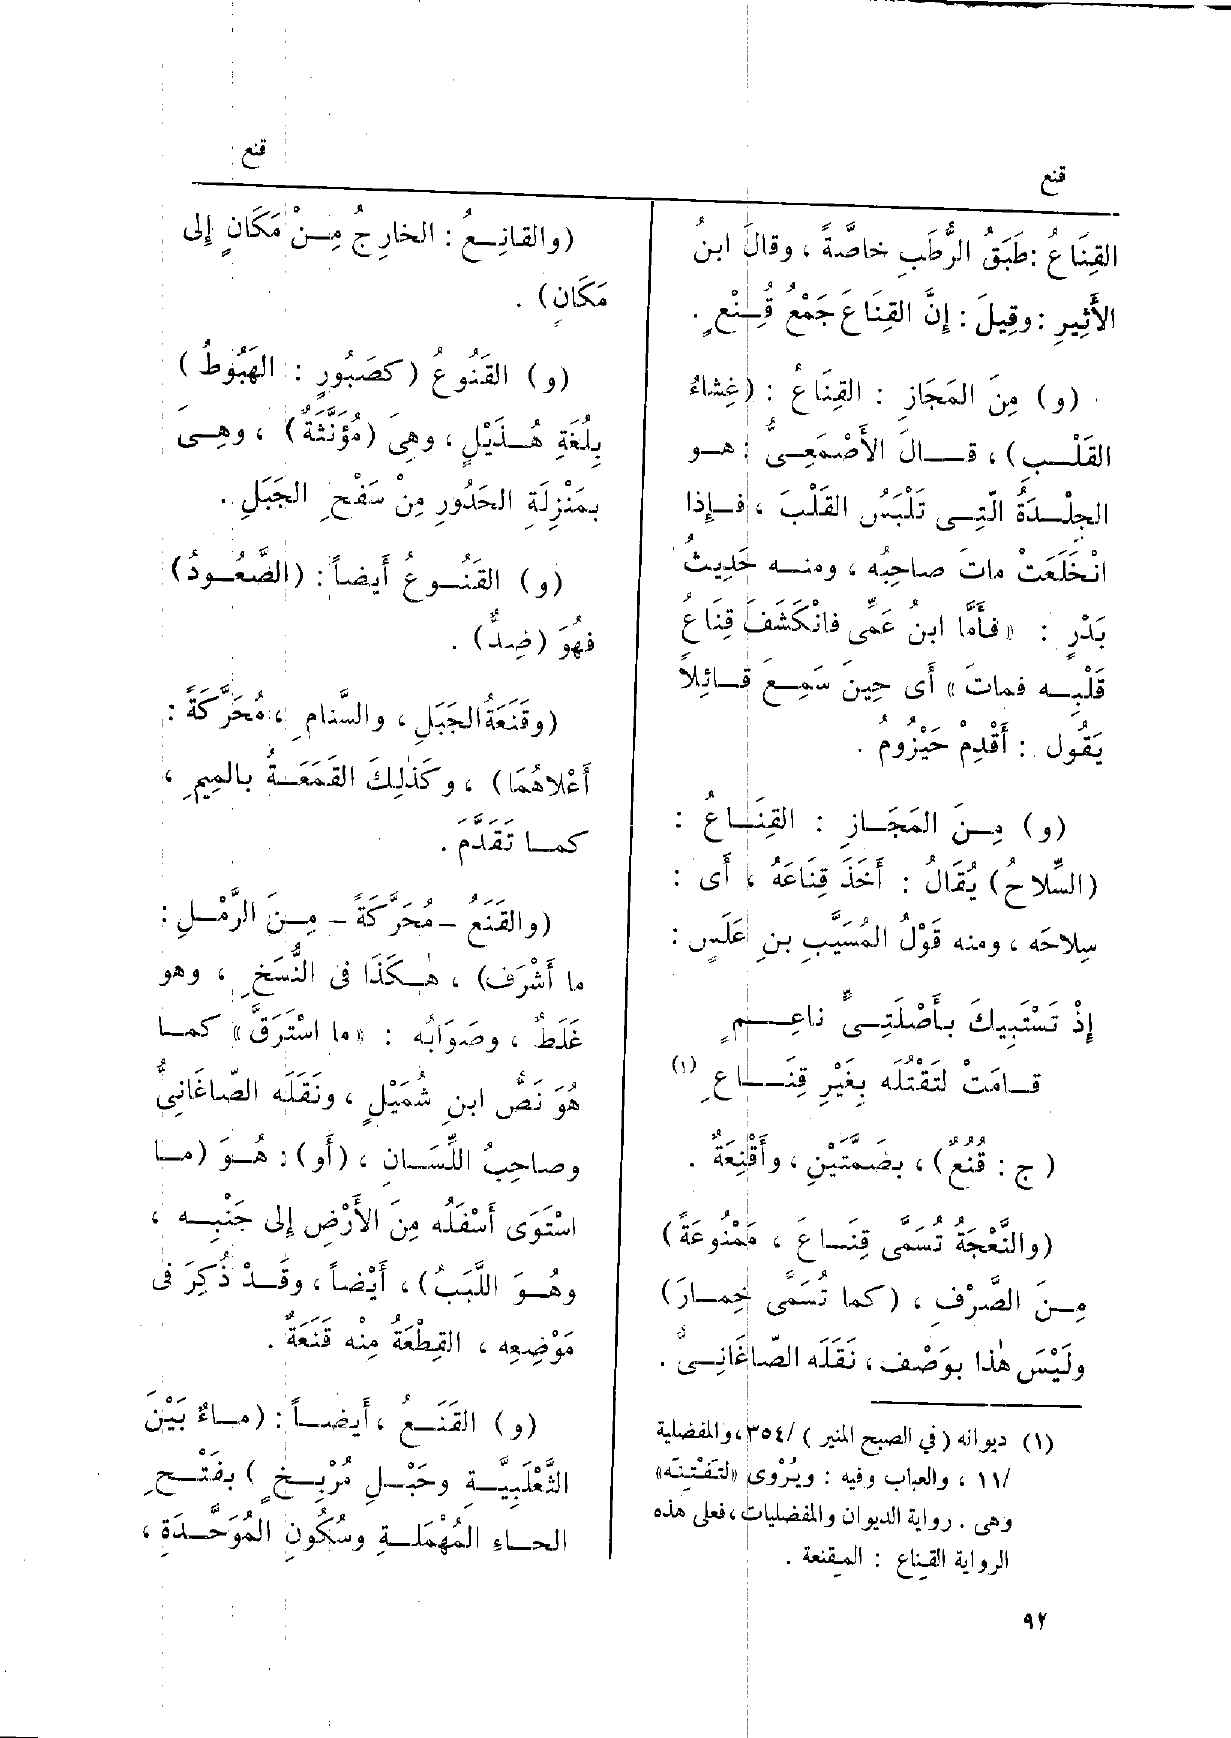 قنع
قنع
القِنَاعُ : طَبَقُ الرُّطَبِ خاصَّةً ، وقالَ ابنُ
الأَثِيرِ : وقِيلَ : إِنَّ القِنَاعَ جَمْعُ قُِنْعٍ .
(و) مِنَ المَجَازِ : القِنَاعُ : (غِشاءُ
القَلْبِ) ، قالَ الأَصْمَعِىُّ : هو
الجِلْدَةُ الَّتِى تَلْبَسُ القَلْبَ ، فإِذا
انْخَلَعَتْ ماتَ صاحِبُه ، ومنه حَدِيثُ
بَدْرٍ : «فأَمَّا ابنُ عَمِّى فانْكَشَفَ قِنَاعُ
قَلْبِه فماتَ» أَى حِينَ سَمِعَ قائِلاً
يَقُول : أَقْدِمْ حَيْزُومُ .
(و) مِنَ المَجَازِ : القِنَاعُ :
(السِّلاحُ) يُقَالُ : أَخَذَ قِنَاعَهُ ، أَى :
سِلاحَه ، ومنه قَوْلُ المُسَيَّبِ بنِ عَلَسٍ :
إِذْ تَسْتَبِيكَ بأَصْلَتِىٍّ ناعِمٍ
قامَتْ لتَقْتُلَه بِغَيْرِ قِنَاعِ (١)
(ج : قُنُعٌ) ، بضَمَّتَيْنِ ، وأَقْنِعَةٌ .
(والنَّعْجَةُ تُسَمَّى قِنَاعَ ، مَمْنُوعَةً)
مِنَ الصَّرْفِ ، (كما تُسَمَّى خِمارَ)
ولَيْسَ هٰذا بوَصْف ، نَقَلَه الصّاغَانِىُّ .
(١) ديوانه (في الصبح المنير) /٣٥٤، والمفضلية
/١١ ، والعباب وفيه : ويُرْوى «لتَفْتِنَه»
وهى . رواية الديوان والمفضليات ، فعلى هذه
الرواية القناع : المقنعة .
(والقانِعُ : الخارِجُ مِنْ مَكَانٍ إِلى
مَكَانٍ) .
(و) القَنُوعُ (كصَبُورٍ : الهَبُوطُ)
بِلُغَةِ هُذَيْلٍ ، وهِىَ (مُؤَنَّثَةٌ) ، وهِىَ
بمَنْزِلَةِ الحَدُورِ مِنْ سَفْحِ الجَبَلِ .
(و) القَنُوعُ أَيضاً : (الصَّعُودُ)
فهُوَ (ضِدٌّ) .
(وقَنَعَةُ الجَبَلِ ، والسَّنامِ ، مُحَرَّكَةً :
أَعْلاهُمَا) ، وكَذٰلِكَ القَمَعَةُ بالمِيمِ ،
كما تَقَدَّمَ .
(والقَنَعُ - مُحَرَّكَةً - مِنَ الرَّمْلِ :
ما أَشْرَف) ، هٰكَذَا فى النُّسَخِ ، وهو
غَلَطٌ ، وصَوَابُه : «ما اسْتَرَقَّ» كما
هُوَ نَصُّ ابنِ شُمَيْلٍ ، ونَقَلَه الصّاغَانِىُّ
وصاحِبُ اللِّسَانِ ، (أَو) : هُوَ (ما
اسْتَوَى أَسْفَلُه مِنَ الأَرْضِ إِلى جَنْبِه ،
وهُوَ اللَّبَبُ) ، أَيْضاً ، وقَدْ ذُكِرَ فى
مَوْضِعِه ، القِطْعَةُ مِنْه قَنَعَةٌ .
(و) القَنَعُ ، أَيضاً : (ماءٌ بَيْنَ
الثَّعْلَبِيَّةِ وحَبْلِ مُرْبِخٍ) بفَتْحِ
الحاءِ المُهْمَلةِ وسُكُونِ المُوَحَّدَةِ ،
٩٢